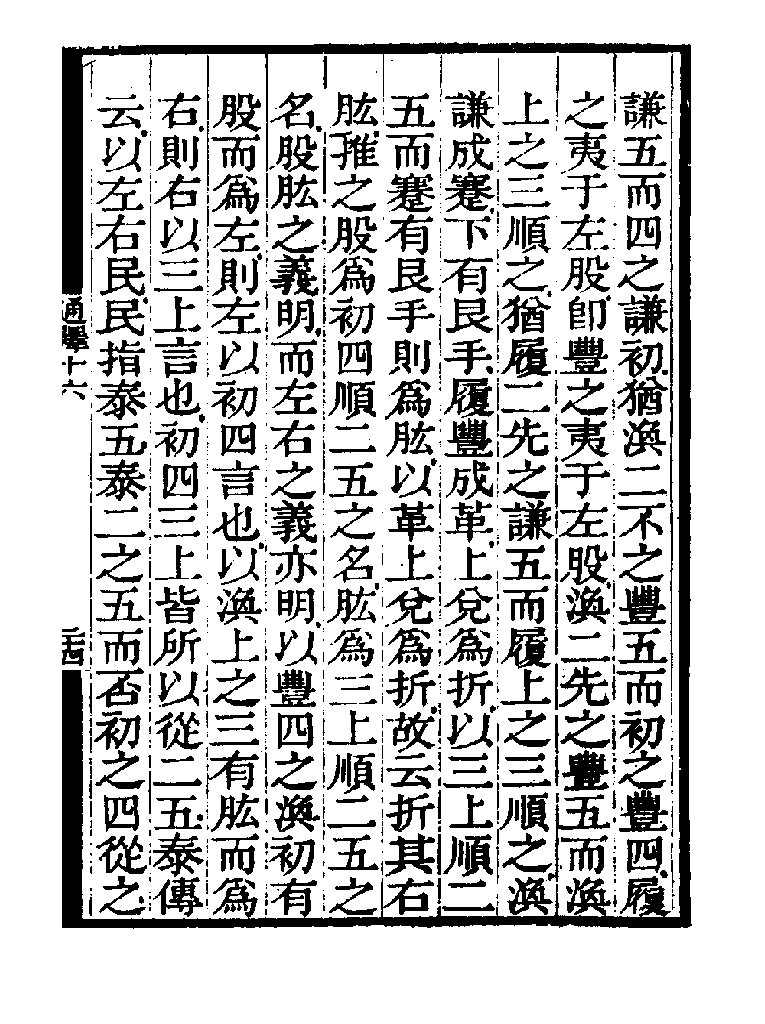 謙五而四之謙初猶渙二不之豐五而初之豐四履
之夷于左股卽豐之夷于左股渙二先之豐五而渙
上之三順之猶履二先之謙五而履上之三順之渙
謙成蹇下有艮手履豐成革上兌爲折以三上順二
五而蹇有艮手則爲肱以革上兌爲折故云折其右
肱推之股爲初四順二五之名肱爲三上順二五之
名股肱之義明而左右之義亦明以豐四之渙初有
股而爲左則左以初四言也以渙上之三有肱而爲
右則右以三上言也初四三上皆所以從二五泰傳
云以左右民民指泰五泰二之五而否初之四從之
通釋十六
二十四